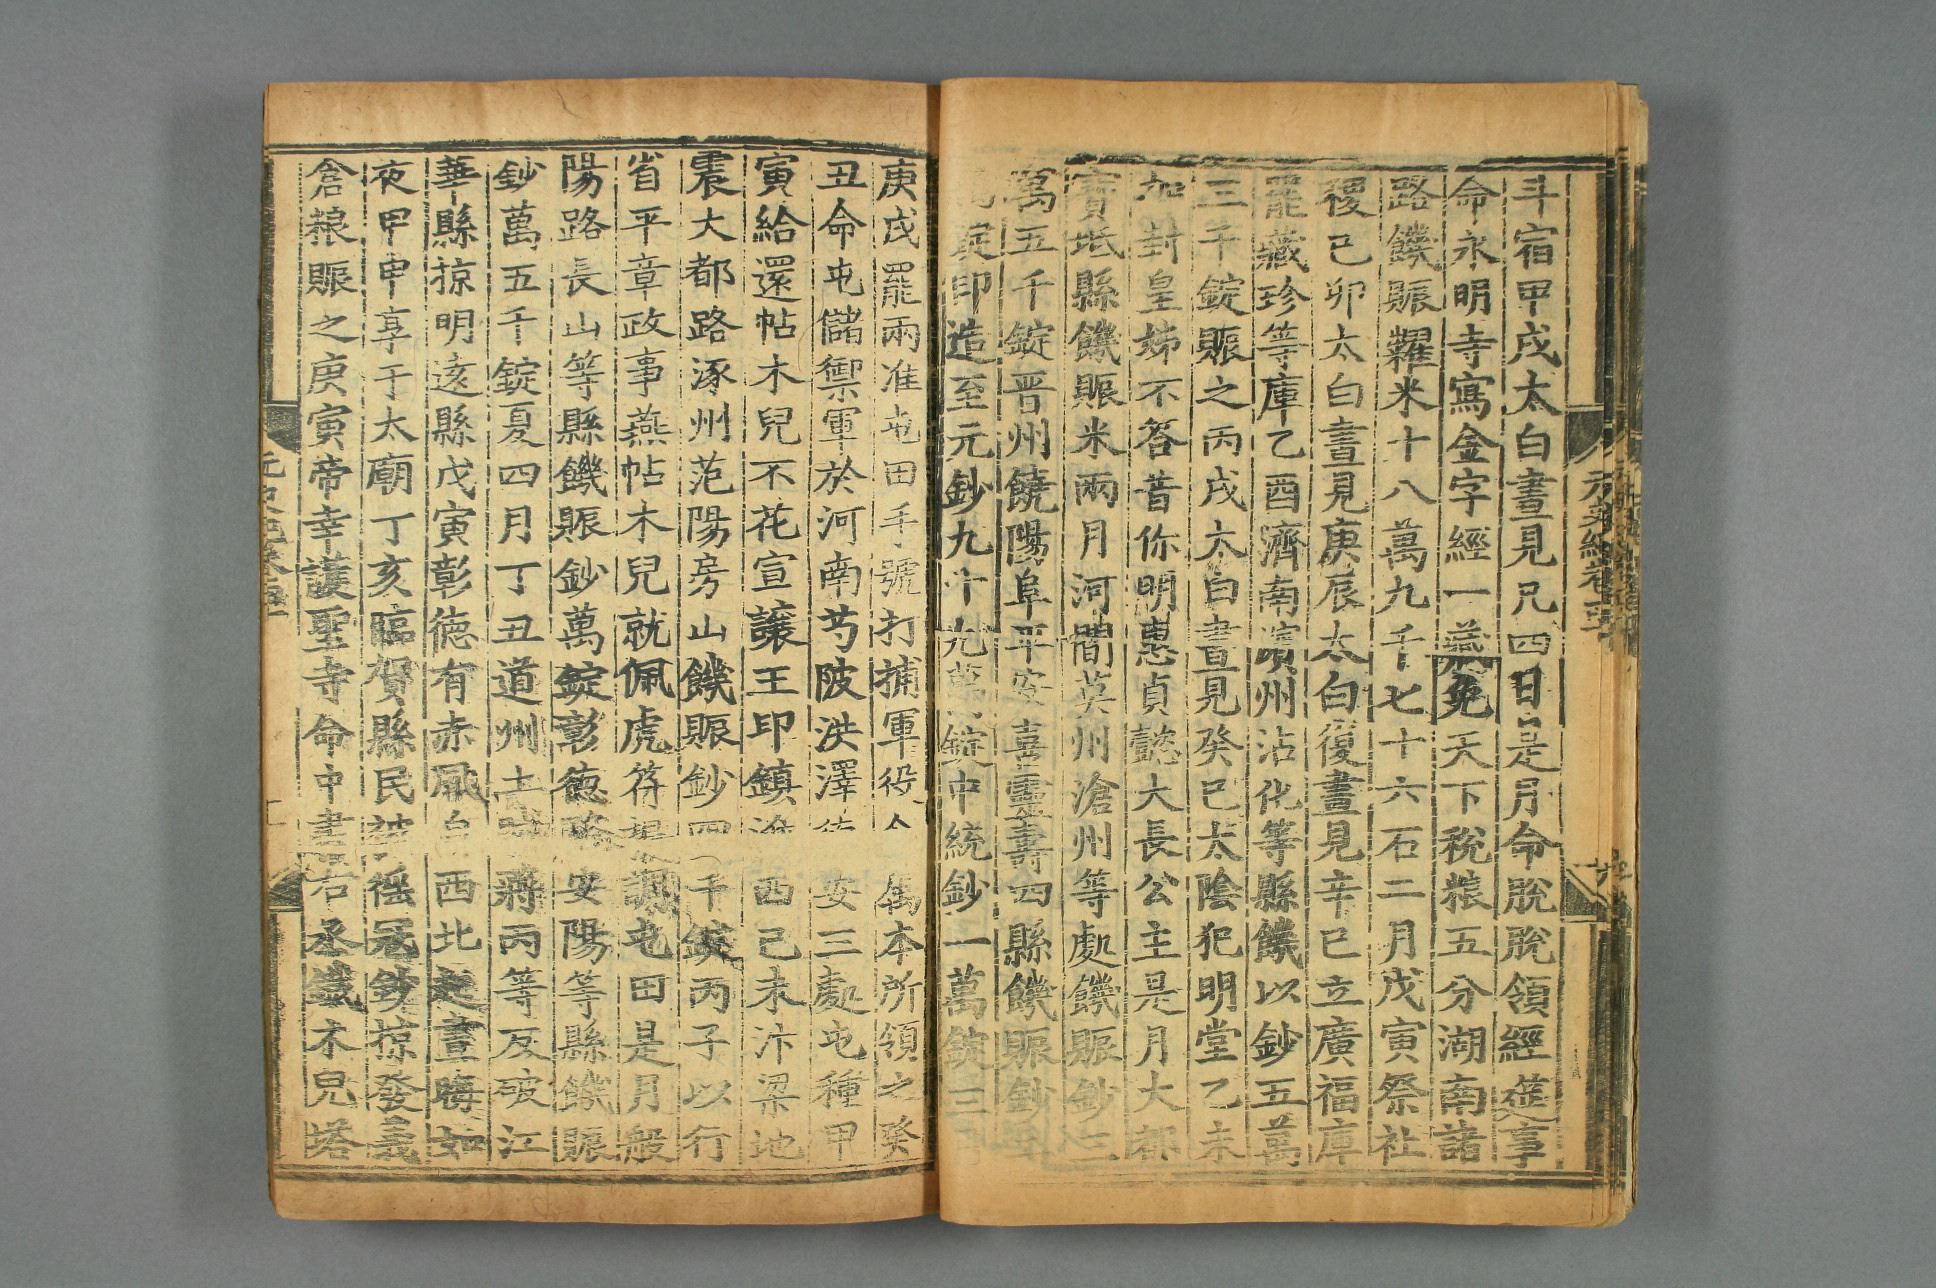 斗宿甲戌太白晝見凡四日是月命脫脫領經筵事
命永明寺寫金字經一藏免天下稅粮五分湖南諸
路饑賑糶米十八萬九千七十六石二月戊寅祭社
稷己卯太白晝見庚辰太白復晝見辛巳立廣福庫
罷藏珍等庫乙酉濟南濱州沾化等縣饑以鈔五萬
三千錠賑之丙戌太白晝見癸巳太陰犯明堂乙未
加封皇姊不答昔你明惠貞懿大長公主是月大都
寶坻縣饑賑米兩月河間莫州滄州等處饑賑鈔三
萬五千錠晋州饒陽阜平安喜靈壽四縣饑賑鈔
錠印造至元鈔九十九萬錠中統鈔一萬錠三
庚戌罷兩淮屯田手號打捕軍役 屬本所領之癸
丑命屯儲禦軍於河南芍陂洪澤 安三處屯種甲
寅給還帖木兒不花宣讓王印鎮淮西己未汴梁地
震大都路涿州范陽房山饑賑鈔四千錠丙子以行
省平章政事燕帖木兒就佩虎符提調屯田是月般
陽路長山等縣饑賑鈔萬錠彰德路安陽等縣饑賑
鈔萬五千錠夏四月丁丑道州土 蔣丙等反破江
華縣掠明遠縣戊寅彰德有赤風自西北起晝晦如
夜甲申享于太廟丁亥臨賀縣民被徭寇鈔掠發義
倉粮賑之庚寅帝幸護聖寺命中書右丞鐵木兒塔